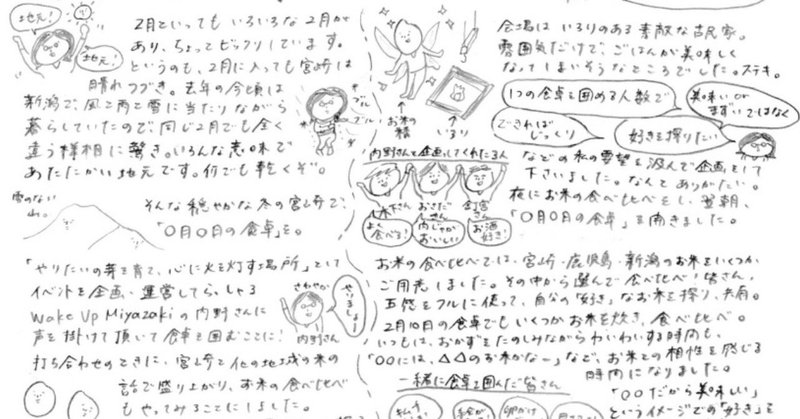 地元!
地元!
2月といってもいろいろな2月が
あり、ちょっとビックリしています。
というのも、2月に入っても宮崎は
晴れつづき。去年の今頃は
新潟で、風と雨と雪に当たりながら
暮らしていたので、同じ2月でも全く
違う様相に驚き。いろんな意味で
あたたかい地元です。何でも乾くぞ。
ブル
ブル
雪のない
山。
そんな穏やかな冬の宮崎で、
「〇月〇日の食卓」を。
「やりたいの芽を育て、心に火を灯す場所」として
イベントを企画・運営してらっしゃる
Wake Up Miyazakiの内野さんに
声を掛けて頂いて食卓を囲むことに!
さわやか
やりましょー
内野さん
打ち合わせのときに、宮崎と他の地域の米の
話で盛り上がり、お米の食べ比べ
もやってみることにしました。
お米の
精
いろり
内野さんと企画してくれた3人
木下さん
おさだ
さん
釘宮
さん
よく
食べる!
肉じゃが
おいしい
お酒
好き!
会場は いろりのある 素敵な古民家。
雰囲気だけで、ごはんが美味しく
なってしまいそうなところでした。ステキ。
1つの食卓を囲める人数で
美味しい or
まずい ではなく
できれば
じっくり
好きを探りたい
などの私の要望を汲んで企画をして
下さいました。なんとありがたい。
夜にお米の食べ比べをし、翌朝、
「〇月〇日の食卓」を開きました。
お米の食べ比べでは、宮崎・鹿児島・新潟のお米をいくつか
ご用意しました。その中から選んで食べ比べ!皆さん、
五感をフルに使って、自分の「好き」なお米を探り、共有。
2月10日の食卓でもいくつかお米を炊き、食べ比べ。
いつもは、おかずをたのしみながらわいわいする時間も、
「〇〇には、△△のお米かなー」など、お米との相性を感じる
時間になりました。
一緒に食卓を囲んだ皆さん
「〇〇だから美味しい」
というイメージで「好き」を